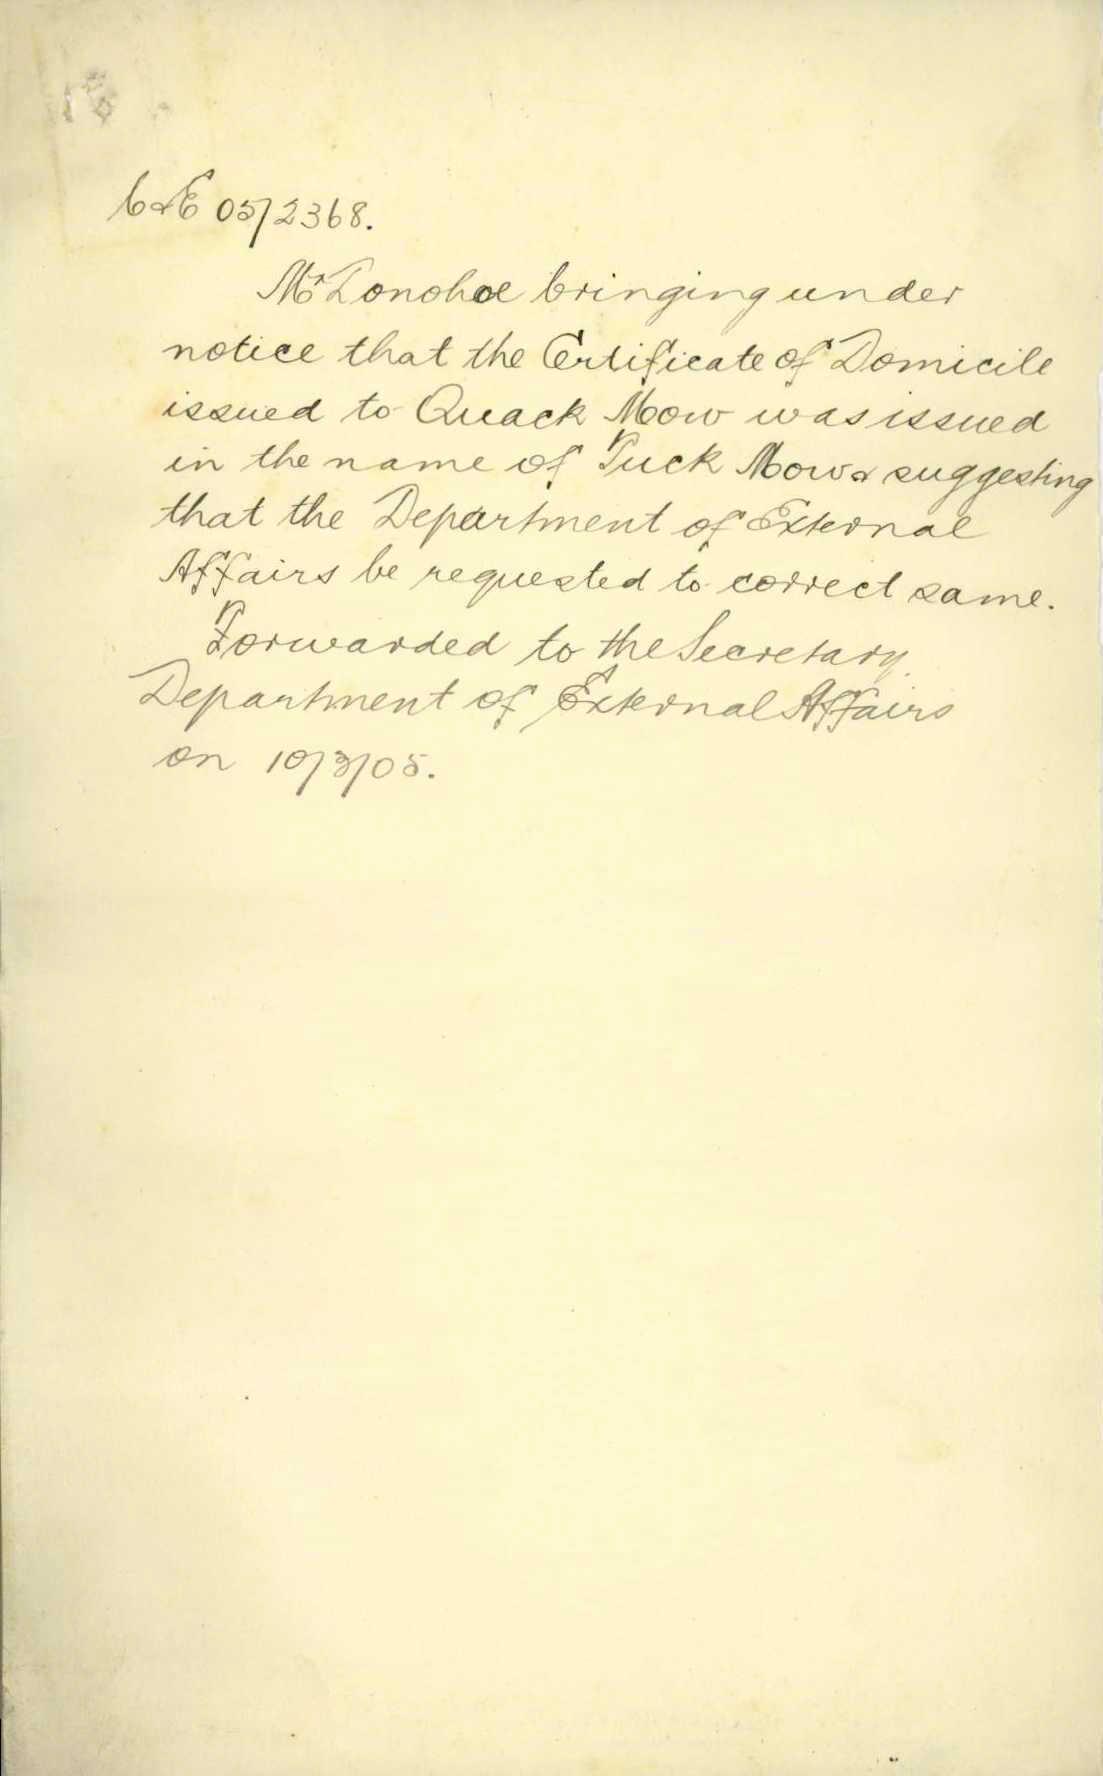 C&E 05/2368.
Mr Donohoe bringing under
notice that the Certificate of Domicile
issued to Quack Mow was issued
in the name of Tuck Mow & suggesting
that the Department of External
Affairs be requested to correct same.
Forwarded to the Secretary
Department of External Affairs
on 10/3/05.